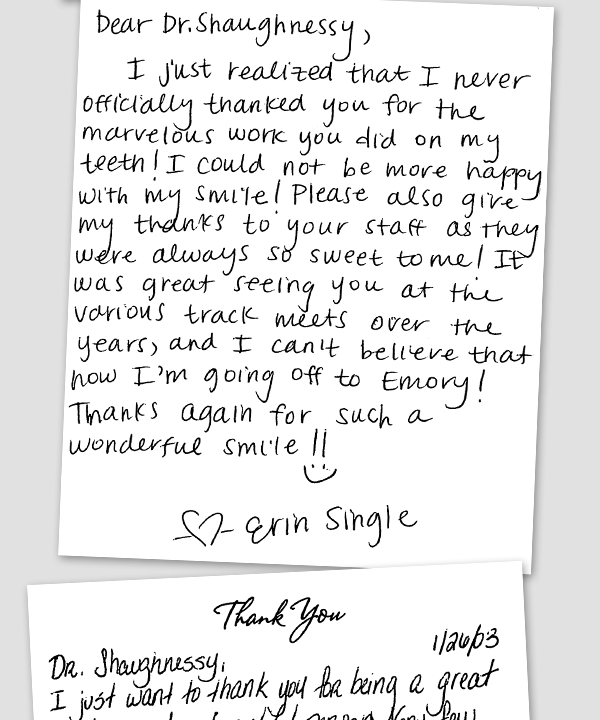 Dear Dr. Shaughnessy,
I just realized that I never
officially thanked you for the
marvelous work you did on my
teeth! I could not be more happy
with my smile! Please also give
my thanks to your staff as they
were always so sweet to me! It
was great seeing you at the
various track meets over the
years, and I can't believe that
now I'm going off to Emory!
Thanks again for such a
wonderful smile!!
Erin Single
Thank You
1/26/03
Dr. Shaughnessy,
I just want to thank you for being a great